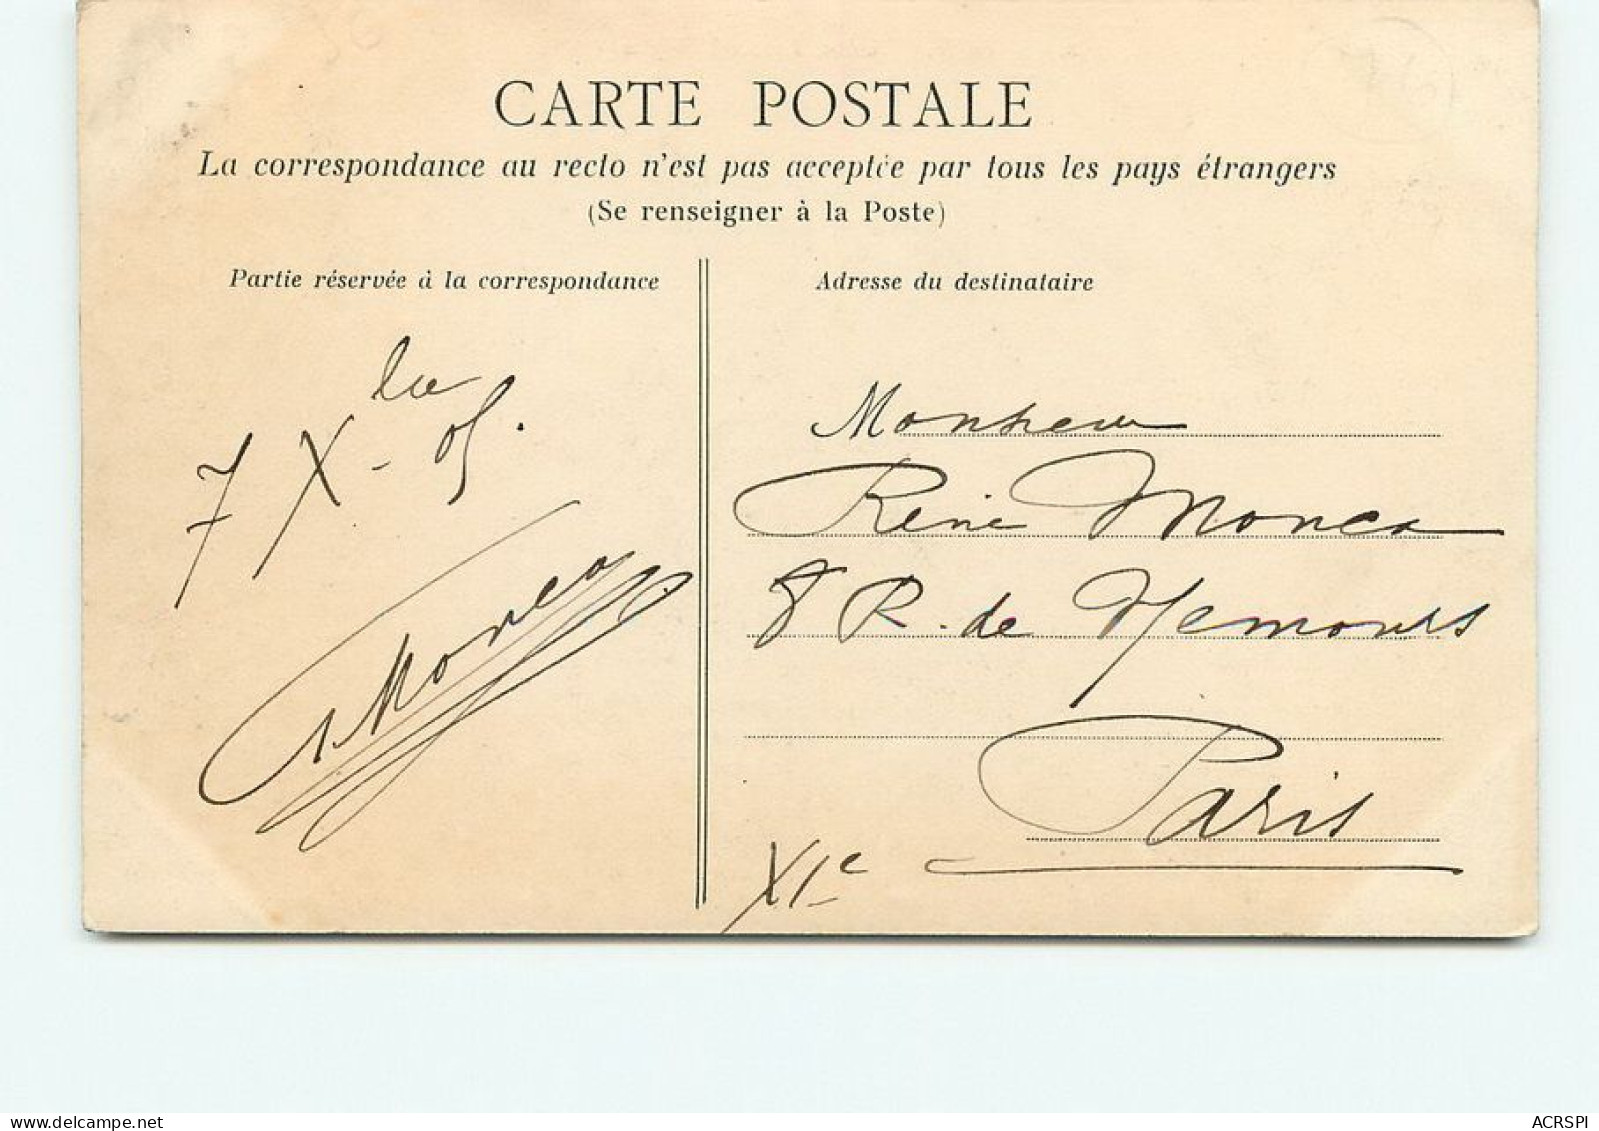 CARTE POSTALE
La correspondance au recto n'est pas acceptée par tous les pays étrangers
(Se renseigner à la Poste)
Partie réservée à la correspondance
7 Xbre 05.
Adresse du destinataire
Monsieur
René
8 R. de Nemours
Paris
XIe
ACRSPI